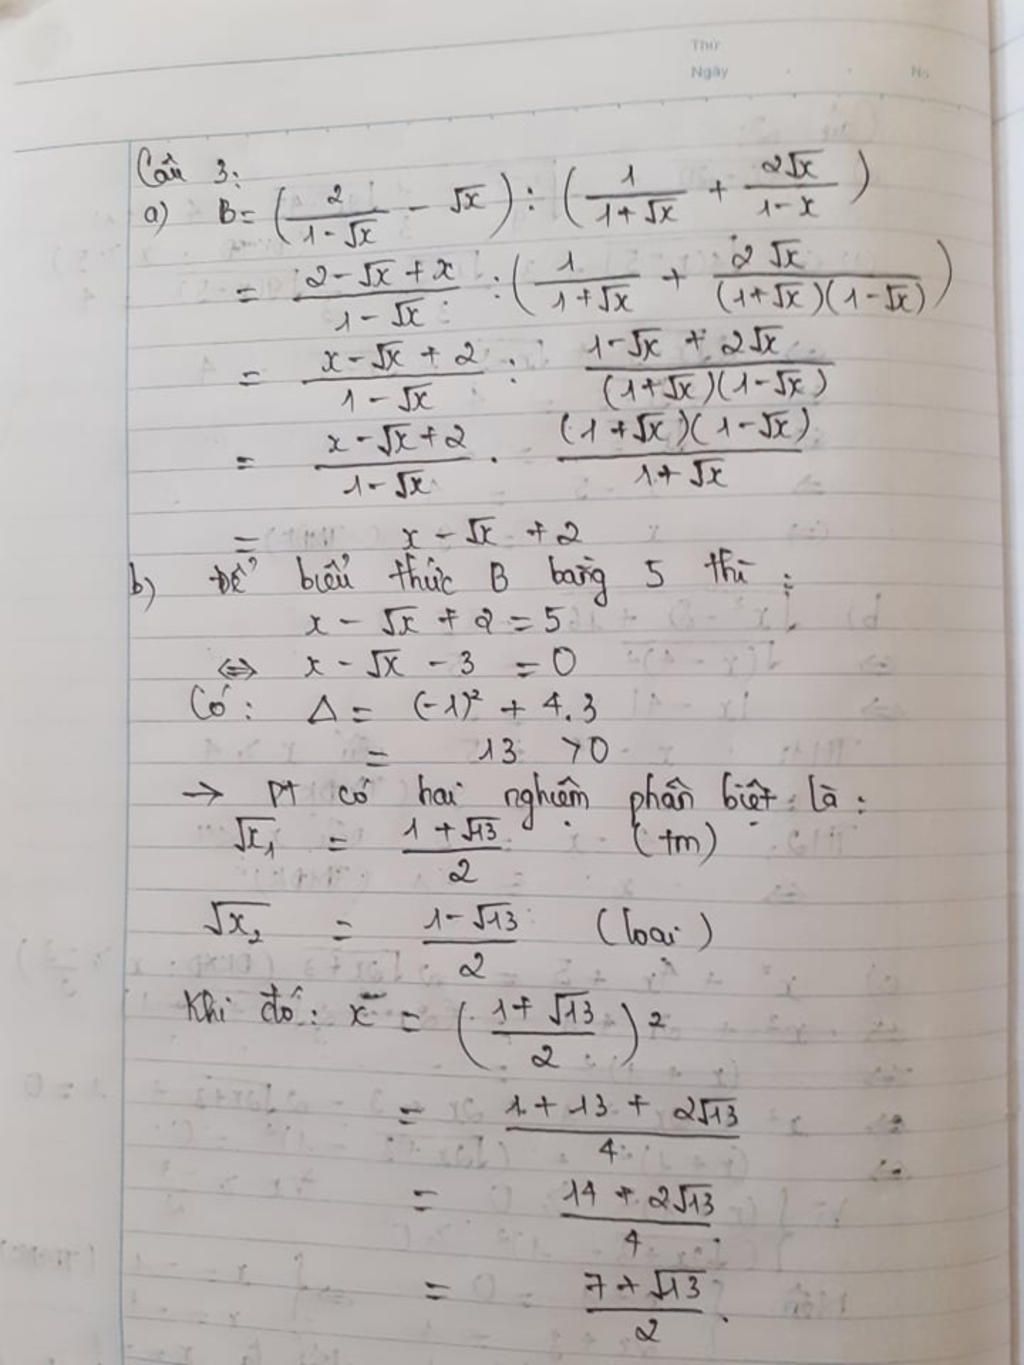 Thứ
Ngày No
Câu 3:
a) B = (2/(1-√x) - √x) : (1/(1+√x) + 2√x/(1-x))
= (2-√x+x)/(1-√x) : (1/(1+√x) + 2√x/((1+√x)(1-√x)))
= (x-√x+2)/(1-√x) : (1-√x+2√x)/((1+√x)(1-√x))
= (x-√x+2)/(1-√x) . ((1+√x)(1-√x))/(1+√x)
= x - √x + 2
b) Để biểu thức B bằng 5 thì :
x - √x + 2 = 5
⇔ x - √x - 3 = 0
Có: Δ = (-1)² + 4.3
= 13 >0
→ PT có hai nghiệm phân biệt là :
√x₁ = (1+√13)/2 (tm)
√x₂ = (1-√13)/2 (loại)
Khi đó: x = ((1+√13)/2)²
= (1+13+2√13)/4
= (14+2√13)/4
= (7+√13)/2 .